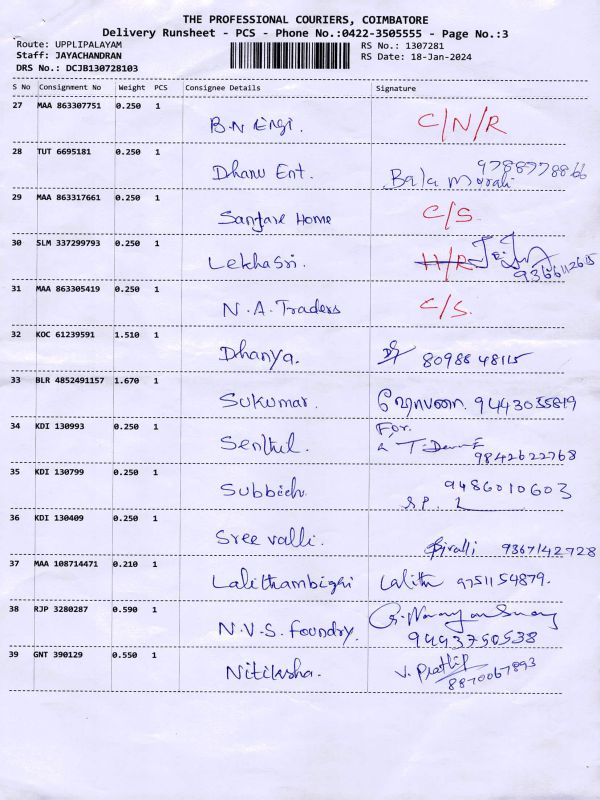 THE PROFESSIONAL COURIERS, COIMBATORE
Delivery Runsheet - PCS - Phone No.:0422-3505555 - Page No.:3
Route: UPPLIPALAYAM RS No.: 1307281
Staff: JAYACHANDRAN RS Date: 18-Jan-2024
DRS No.: DCJB130728103
S No Consignment No Weight PCS Consignee Details Signature
27 MAA 863307751 0.250 1
B.N Engi. C/N/R
28 TUT 6695181 0.250 1
Dhanu Ent. Bala Murali 9788978866
29 MAA 863317661 0.250 1
Sanjare Home C/S.
30 SLM 337299793 0.250 1
Lekhasri. H/R
9366112615
31 MAA 863305419 0.250 1
N.A. Traders C/S.
32 KOC 61239591 1.510 1
Dhanya. 8098848115
33 BLR 4852491157 1.670 1
Sukumar. 9443035819
34 KDI 130993 0.250 1
For.
Senthil.
9842622768
35 KDI 130799 0.250 1
Subbiah 9486010603
S.P.
36 KDI 130409 0.250 1
Sree valli. 9367142728
37 MAA 108714471 0.210 1
Lalithambigai Lalitha 9751154879.
38 RJP 3280287 0.590 1
N.V.S. Foundry.
9443750538
39 GNT 390129 0.550 1
Nitiksha. V. Prathip
8870067893